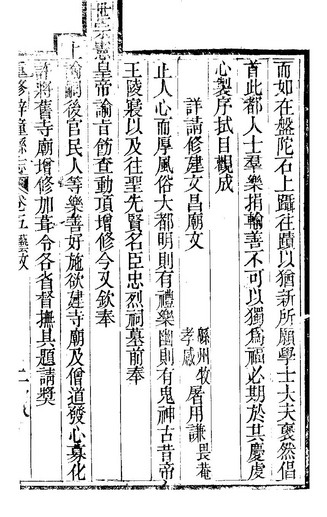 而如在盤陀石上躡往蹟以猶新所願學士大夫褒然倡
首此都人士羣樂捐輸善不可以獨爲福必期於其慶虔
心製序拭目觀成
詳請修建文昌廟文
緜州牧屠用謙畏菴
孝感
止人心而厚風俗大都明則有禮樂幽則有鬼神古昔帝
王陵寢以及往聖先賢名臣忠烈祠墓前奉
世宗憲皇帝諭旨飭查動項增修今又欽奉
上諭嗣後官民人等樂善好施欲建寺廟及僧道發心募化
許將舊寺廟增修加葺令各省督撫具題請獎
重修梓潼縣志 卷之五藝文